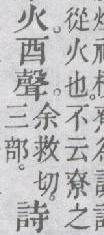 從火也。不云寮之
火。酉聲。余救切。三部。詩